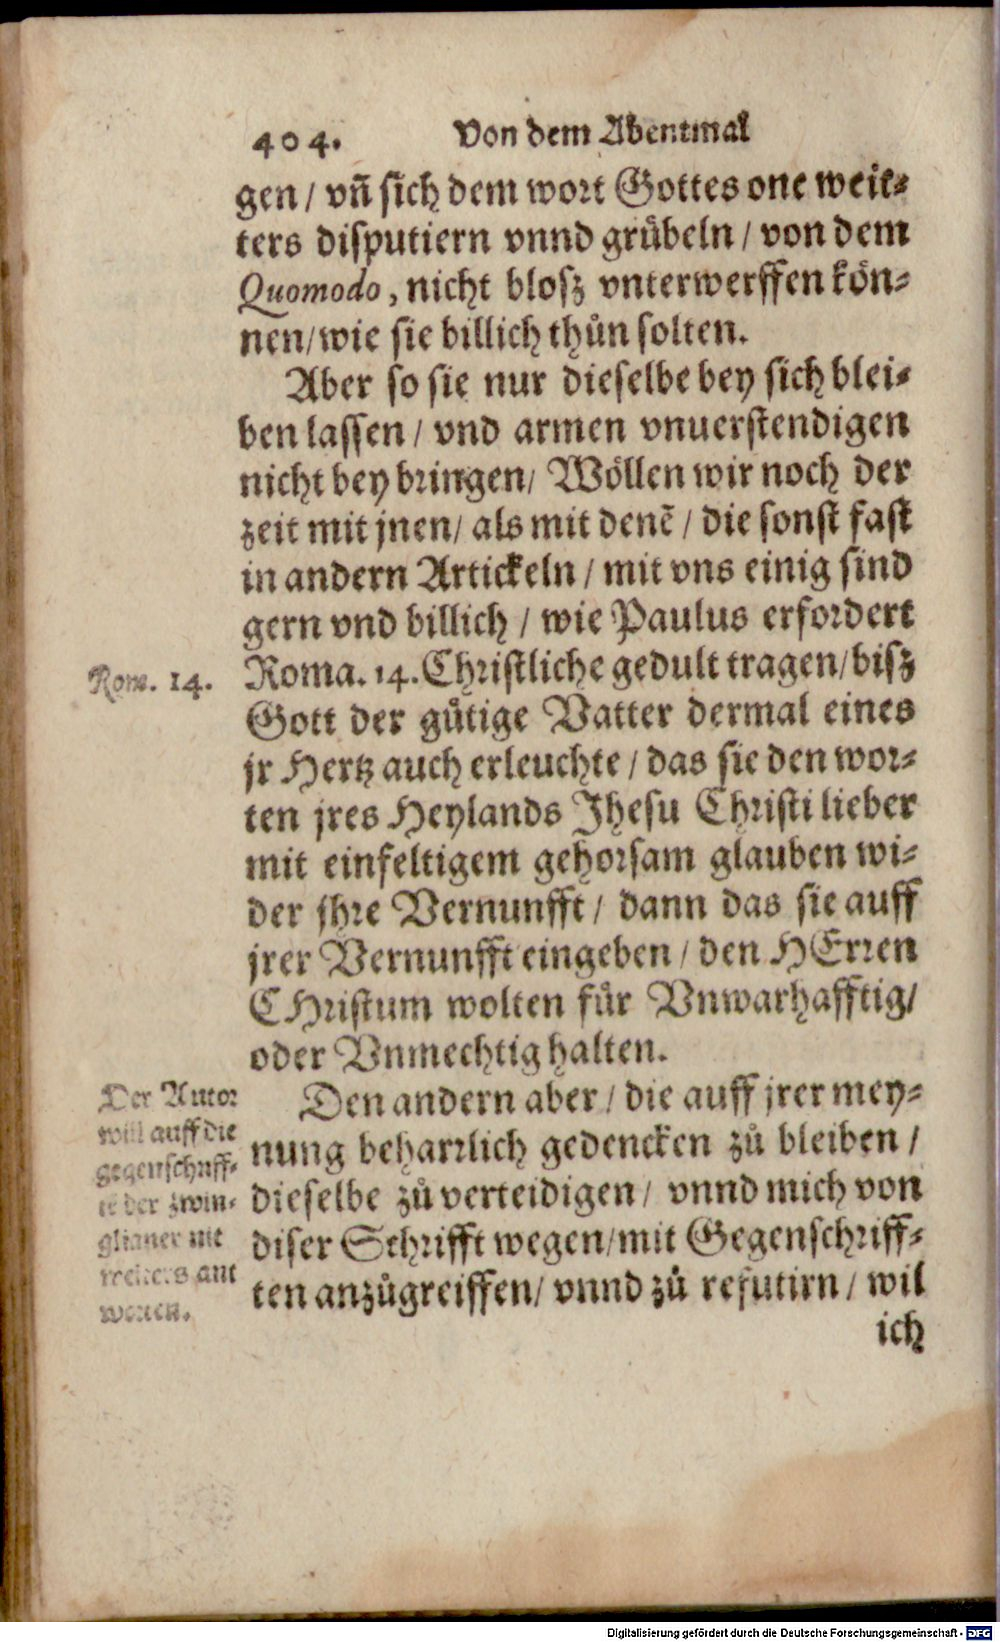 404. Von dem Abentmal
gen / vñ sich dem wort Gottes one weit-
ters disputiern vnnd grübeln / von dem
Quomodo, nicht blosz vnterwerffen kön-
nen / wie sie billich thůn solten.
Aber so sie nur dieselbe bey sich blei-
ben lassen / vnd armen vnuerstendigen
nicht bey bringen / Wöllen wir noch der
zeit mit jnen / als mit denẽ / die sonst fast
in andern Artickeln / mit vns einig sind
gern vnd billich / wie Paulus erfordert
Rom. 14.
Roma. 14. Christliche gedult tragen / bisz
Gott der gütige Vatter dermal eines
jr Hertz auch erleuchte / das sie den wor-
ten jres Heylands Jhesu Christi lieber
mit einfeltigem gehorsam glauben wi-
der jhre Vernunfft / dann das sie auff
jrer Vernunfft eingeben / den HErren
CHristum wolten für Vnwarhafftig /
oder Vnmechtig halten.
Der Autor
will auff die
gegenschriff-
te der Zwin-
glianer nit
weiters ant
worten.
Den andern aber / die auff jrer mey-
nung beharrlich gedencken zů bleiben /
dieselbe zů verteidigen / vnnd mich von
diser Schrifft wegen / mit Gegenschriff-
ten anzůgreiffen / vnnd zů refutirn / wil
ich
Digitalisierung gefördert durch die Deutsche Forschungsgemeinschaft - DFG